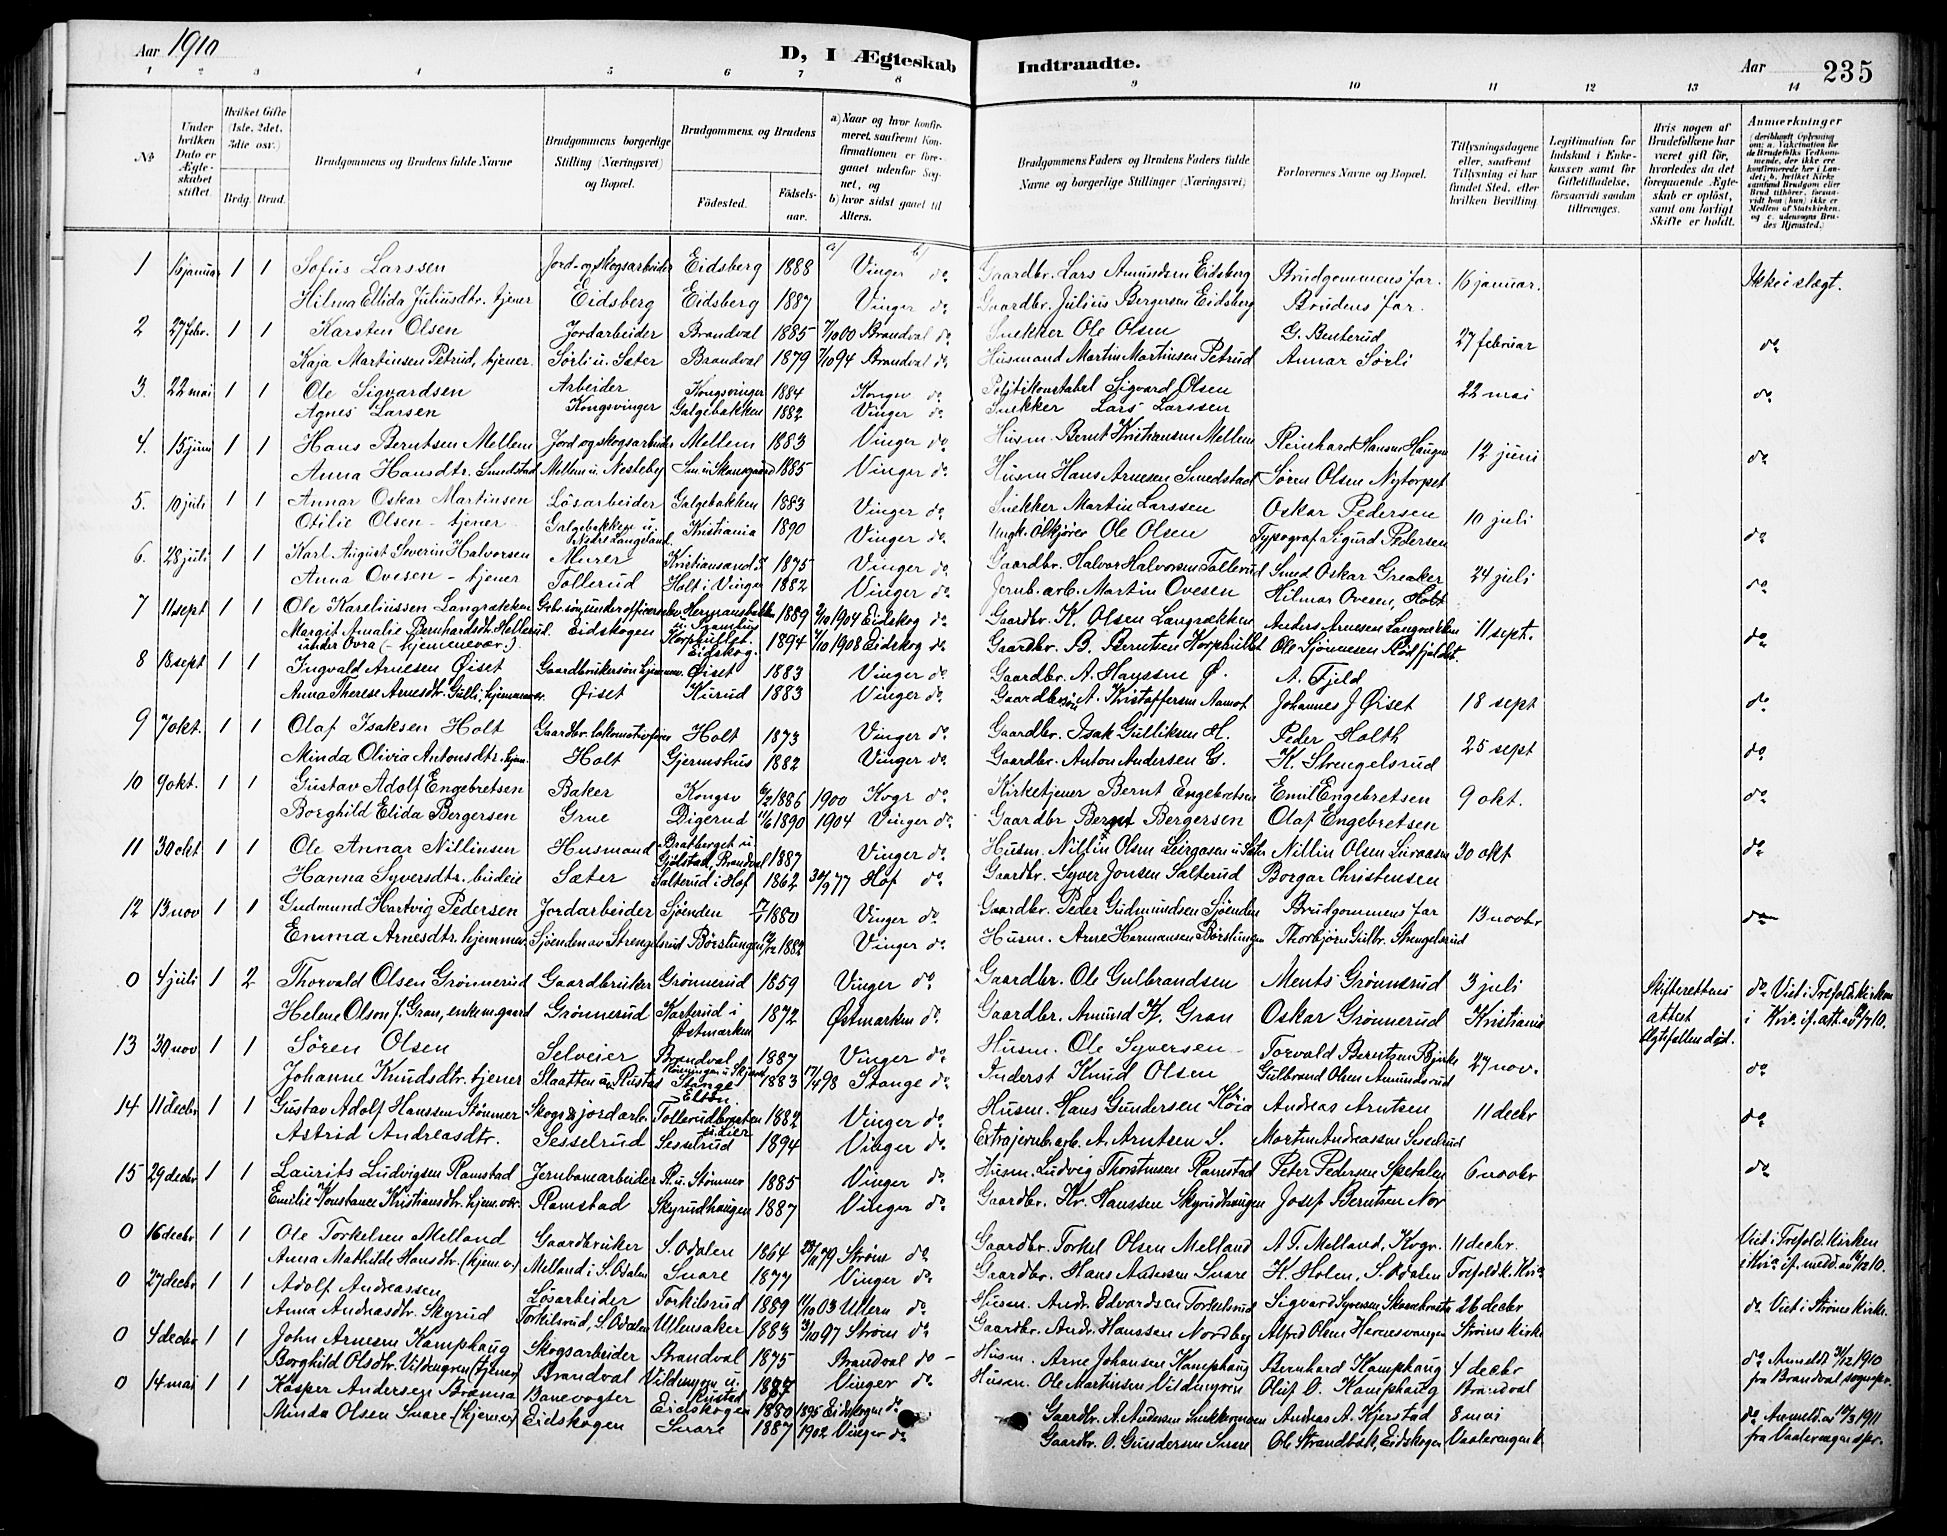 Aar 1910 D, I Ægteskab Indtraadte. Aar 235
1 2 3 4 5 6 7 8 9 10 11 12 13 14
No
Under hvilken Dato er Ægteskabet stiftet.
Hvilket Gifte (1ste, 2det, 3die osv.)
Brdg. Brud.
Brudgommens og Brudens fulde Navne
Brudgommens borgerlige Stilling (Næringsvei) og Bopæl.
Brudgommens og Brudens
Fødested. Fødselsaar.
a) Naar og hvor konfirmeret, saafremt Konfirmationen er foregaaet udenfor Sognet, og
b) hvor sidst gaaet til Alters.
Brudgommens Faders og Brudens Faders fulde Navne og borgerlige Stillinger (Næringsvei)
Forlovernes Navne og Bopæl.
Tillysningsdagene eller, saafremt Tillysning ei har fundet Sted, efter hvilken Bevilling.
Legitimation for Indskud i Enkekassen samt for Giftetilladelse, forsaavidt saadan tiltrænges.
Hvis nogen af Brudefolkene har været gift før, hvorledes da det foregaaende Ægteskab er opløst, samt om lovligt Skifte er holdt.
Anmerkninger
a) b)
1 15 januar 1 1 Sofus Larssen Jord- og Skogsarbeider Eidsberg 1888 Vinger do Gaardbr. Lars Amundsen Eidsberg Brudgommens far. 16 januar. Ikke i slægt.
Hilma Ellida Juliusdtr. tjener Eidsberg Eidsberg 1887 Vinger do Gaardbr. Julius Bergersen Eidsberg Brudens far.
2 27 febr. 1 1 Karsten Olsen Jordarbeider Brandval 1885 7/10 00 Brandval do Snekker Ole Olsen G. Benterud 27 februar do
Kaja Martinsen Petrud, tjener Sørli u. Sæter Brandval 1879 7/10 94 Brandval do Husmand Martin Martinsen Petrud Annar Sørli
3. 22 mai 1 1 Ole Sigvardsen Arbeider Kongsvinger 1884 Kongsv do Politikonstabel Sigvard Olsen 22 mai do
Agnes Larsen Kongsvinger Galgebakken 1882 Vinger do Snekker Lars Larssen
4. 15 juni 1 1 Hans Berntsen Mellem Jord og skogsarbeider Mellem 1883 Vinger do Husm. Bernt Kristiansen Mellem Reinhard Hansen Haugen 12 juni do
Anna Hansdtr. Smedstad Mellem u. Nesteby 1885 Vinger do Husm Hans Arnesen Smedstad Søren Olsen Nytorpet
5. 10 juli 1 1 Annar Oskar Martinsen Løsarbeider Galgebakken 1883 Vinger do Snekker Martin Larssen Oskar Pedersen 10 juli do
Otilie Olsen - tjener Galgebakken u. Nedre Langeland Kristiania 1890 Vinger do Ungk. ølkjører Ole Olsen Typograf Sigurd Pedersen
6. 28 juli 1 1 Karl August Severin Halvorsen Murer Kristiansand S. 1875 Vinger do Gaardbr. Halvor Halvorsen Tollerud Smed Oskar Greaker 24 juli do
Anna Ovesen - tjener Tollerud Holt i Vinger 1882 Vinger do Jernb. arb. Martin Ovesen Hilmar Ovesen, Holt
7 11 sept 1 1 Ole Kareliussen Langrækken Gbr. søn, underofficerselev 1889 2/10 1904 Eidskog do Gaardbr. K. Olsen Langrækken Anders Arnesen Langrækken 11 sept. do
Margit Amalie Bernhardsdtr. Hollerud Eidskogen Eidskog. 1894 1/10 1908 Eidskog do Gaardbr. B. Berntsen Korphullet Ole Sjønnesen Rødfjeldet.
8 18 sept 1 1 Ingvald Arnesen Øiset Gaardbrukersøn hjemmev. Øiset 1883 Vinger do Gaardbr. A. Hanssen Ø. A. Fjeld
Anna Therese Arnesdtr. Gulli, hjemmev. Øiset Kurud 1883 Vinger do Gaardbr A. Kristoffersen Aamot Johannes J. Øiset 18 sept do
9 7 okt. 1 1 Olaf Isaksen Holt Gaardbr. lokomotivfører Holt 1873 Vinger do Gaardbr. Isak Gulliksen H. Peder Holth 25 sept do
Minda Olivia Antonsdtr. hjem. Holt Gjermshus 1882 Vinger do Gaardbr. Anton Andersen G. K. Strengelsrud
10 9 okt. 1 1 Gustav Adolf Engebretsen Baker Kongsv 6/2 1886 1900 Kvgr do Kirketjener Bernt Engebretsen Emil Engebretsen 9 okt. do
Borghild Elida Bergersen Grue Digerud 11/6 1890 1904 Vinger do Gaardbr Bernt Bergersen Olaf Engebretsen
11 30 okt 1 1 Ole Annar Nillinsen Husmand Bratberget u. Gjølstad, Brandval 1887 Vinger do Husm. Nillin Olsen Leirgasen u. Sæter Nillin Olsen Leiraasen 30 okt do
Hanna Syversdtr. budeie Sæter Salterud i Hof 1862 30/9 77 Hof do Gaardbr. Syver Jonsen Salterud Borgar Christensen
12 13 nov 1 1 Gudmund Hartvig Pedersen Jordarbeider Sjøenden 1880 Vinger do Gaardbr. Peder Gudmundsen Sjøenden Brudgommens far 13 novbr do
Emma Arnesdtr. hjemmev. Sjøenden av Strengelsrud Børstungen 1882 Vinger do Husm. Arne Hermansen Børstungen Thorbjørn Gulbr. Strengelsrud
0 4 juli 1 2 Thorvald Olsen Grønnerud Gaardbruker Grønnerud 1859 Vinger do Gaardbr. Ole Gulbrandsen Ments Grønnerud 3 juli Skifterettens do Viet i Trefold. kirken
Helene Olson f. Gran, enkem. gaard Grønnerud Karterud i Østmarken 1872 Østmarken do Gaardbr. Amund K. Gran Oskar Grønnerud Kristiania attest i Kra. if. att. av 10. Egtefællen død.
13 30 nov 1 1 Søren Olsen Selveier Brandval 1887 Vinger do Husm. Ole Syversen Torvald Berntsen Bjerke 27 nov. do
Johanne Knudsdtr. tjener Slaatten u. Rustad Stange 1883 98 Stange do Inderst Knud Olsen Gulbrand Olsen Amundsrud
14 11 decbr 1 1 Gustav Adolf Hanssen Stømmer Skogs & jordarb. Tollerudbraaten u. Lier 1882 Vinger do Husm. Hans Gundersen Køia Andreas Arntsen 11 decbr do
Astrid Andreasdtr. Sesselrud Sesselrud 1894 Vinger do Extrajernb. arb. A. Arntsen S. Morten Andreassen Sesselrud
15 29 decbr 1 1 Laurits Ludvigsen Ramstad Jernbanearbeider R. u. Stømmer 1885 Vinger do Husm. Ludvig Thorstensen Ramstad Peter Pedersen Spetalen 6 novbr do
Emilie Konstance Kristiansdtr. hjem. v. Ramstad Skyrudhaugen 1887 Vinger do Gaardbr. Kr. Hanssen Skyrudhaugen Josef Berntsen Nor
0 16 decbr 1 1 Ole Torkelsen Melland Gaardbruker S. Odalen 1864 79 Strøm do Gaardbr. Torkel Olsen Melland A. T. Melland, Kvgr. 11 decbr. Viet i Trefold. kirken
Anna Mathilde Hansdtr. (hjemv.) Melland i S. Odalen Snare 1877 Vinger do Gaardbr. Hans Andersen Snare K. Holen, S. Odalen Trefoldk. Kra i Kra if. medd. av 16/12 10.
0 27 decbr 1 1 Adolf Andreassen Løsarbeider Torkilsrud 1889 11/10 03 Ullern do Husm. Andr. Edvardsen Torkelsrud Sigvard Syversen 26 decbr do Viet i Strøms kirke.
Anna Andreasdtr. Skyrud Torkilsrud, S. Odalen Ullensaker 1883 3/10 97 Strøm do Gaardbr. Andr. Hanssen Nordby Alfred Olsen Hernesvangen Strøms kirke
0 4 decbr 1 1 John Arnesen Kamphaug Skogsarbeider Brandval 1875 Brandval do Husm. Arne Johansen Kamphaug Bernhard Kamphaug 4 decbr do Anmeldt 31/12 1910
Borghild Olsdtr. Vildengren (tjener) Brandval Vildengren u. Rustad 1887 Vinger do Husm. Ole Martinsen Vildengren Oluf O. Kamphaug Brandval fra Brandval sognepr.
0 14 mai 1 1 Kasper Andersen Brænna Banevogter Eidskogen 1880 1895 Eidskogen do Gaardbr. A. Andersen Andreas A. Kjerstad 8 mai do Anmeld. av 14/3 1911
Minda Olsen Snare (hjemv.) Eidskogen Snare 1887 1902 Vinger do Gaardbr. O. Gundersen Snare Ole Strandbak, Eidskogen Vaalerengen k. fra Vaalerengen spr.